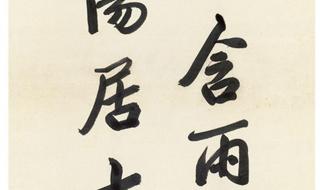 含雨
陽居士